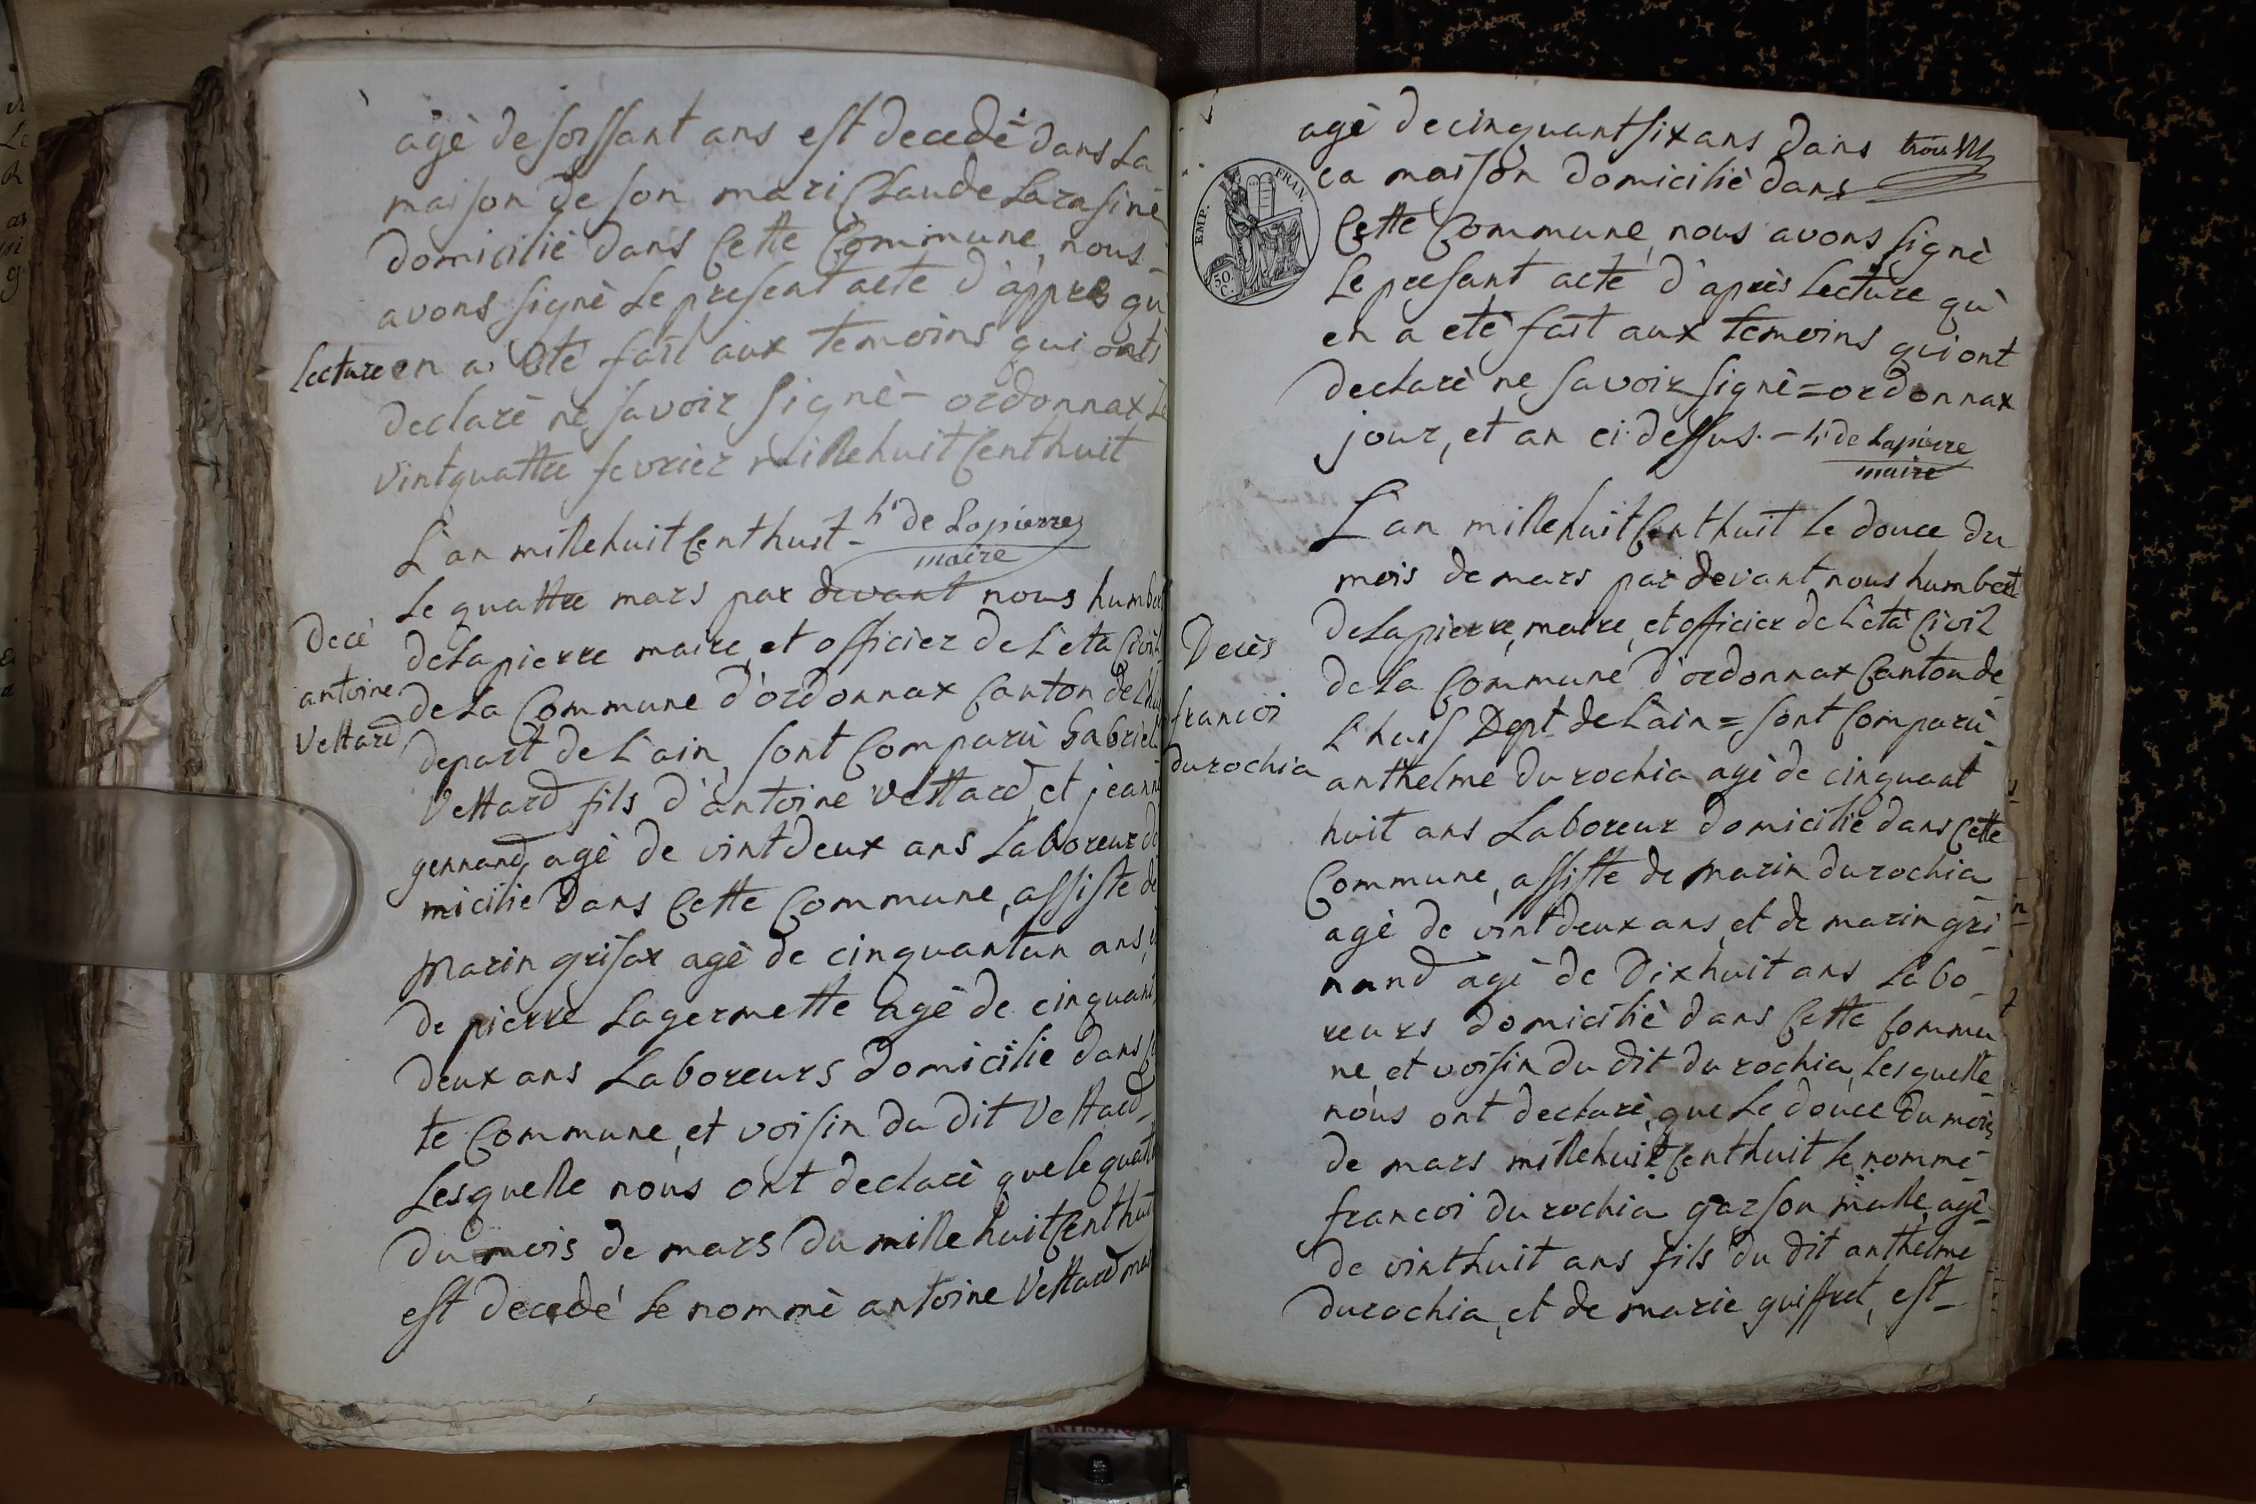 agè de soissant ans est decedè dans La
maison de son mari Claude Larasine
domiciliè dans Cette Commune, nous
avons signè Le present acte d'àppres qu
Lecture en a etè fait aux temoins qui onts
declarè ne savoir signè - ordonnax Le
vintquattre fevrier millehuitCenthuit
L'an millehuitCenthuit - h. de Lapierre
maire
Le quattre mars par devant nous humbert
deLapierre maire, et officier de L'eta Civil
Decé
antoine
Vettard
de La Commune d'ordonnax Canton de Lhui
depart de L'ain, sont Comparù Gabriel
Vettard fils d'àntoine Vettard, et jeanne
gennand, agè de vintdeux ans Laboreur do
miciliè dans Cette Commune, assiste de
Marin grisar agè de cinquantun ans, et
de pierre Lagermette agè de cinquant
deuxans Laboreurs domicilie dans Ce
te Commune, et voisin du dit Vettard
Lesquelle nous ont declarè que le quattre
du mois de mars du mille huitCenthuit
est decedé Le nommè antoine Vettard
agè de cinquantsix ans dans
ca maison domiciliè dans
EMP. FRAN.
50 C.
Cette Commune, nous avons signè
Le presant acte d'après Lecture qu'
en a etè fait aux temoins qui ont
declarè ne savoir signè = ordonnax
jour, et an ci-dessus. - h. de Lapierre
maire
L'an millehuitCenthuit Le douce du
mois de mars par devant nous humbert
deLapierre, maire, et officier de L'età Civil
Decès
francoi
durochia
de La Commune d'ordonnax Canton de
Lhuis Dept de L'ain = sont Comparù
anthelme durochia agè de cinquant
huit ans Laboreur domiciliè dans Cette
Commune, assiste de marin durochia
agè de vintdeux ans, et de marin gri-
nand agè de Dixhuit ans Labo-
reurs domiciliè dans Cette Commu
ne, et voisin du dit durochia, Lesquelle
nous ont declarè, que Le douce du mois
de mars millehuitCenthuit Le nommè
francoi durochia garson malle, agè
de vinthuit ans fils du dit anthelme
durochia, et de marie guiffret, est